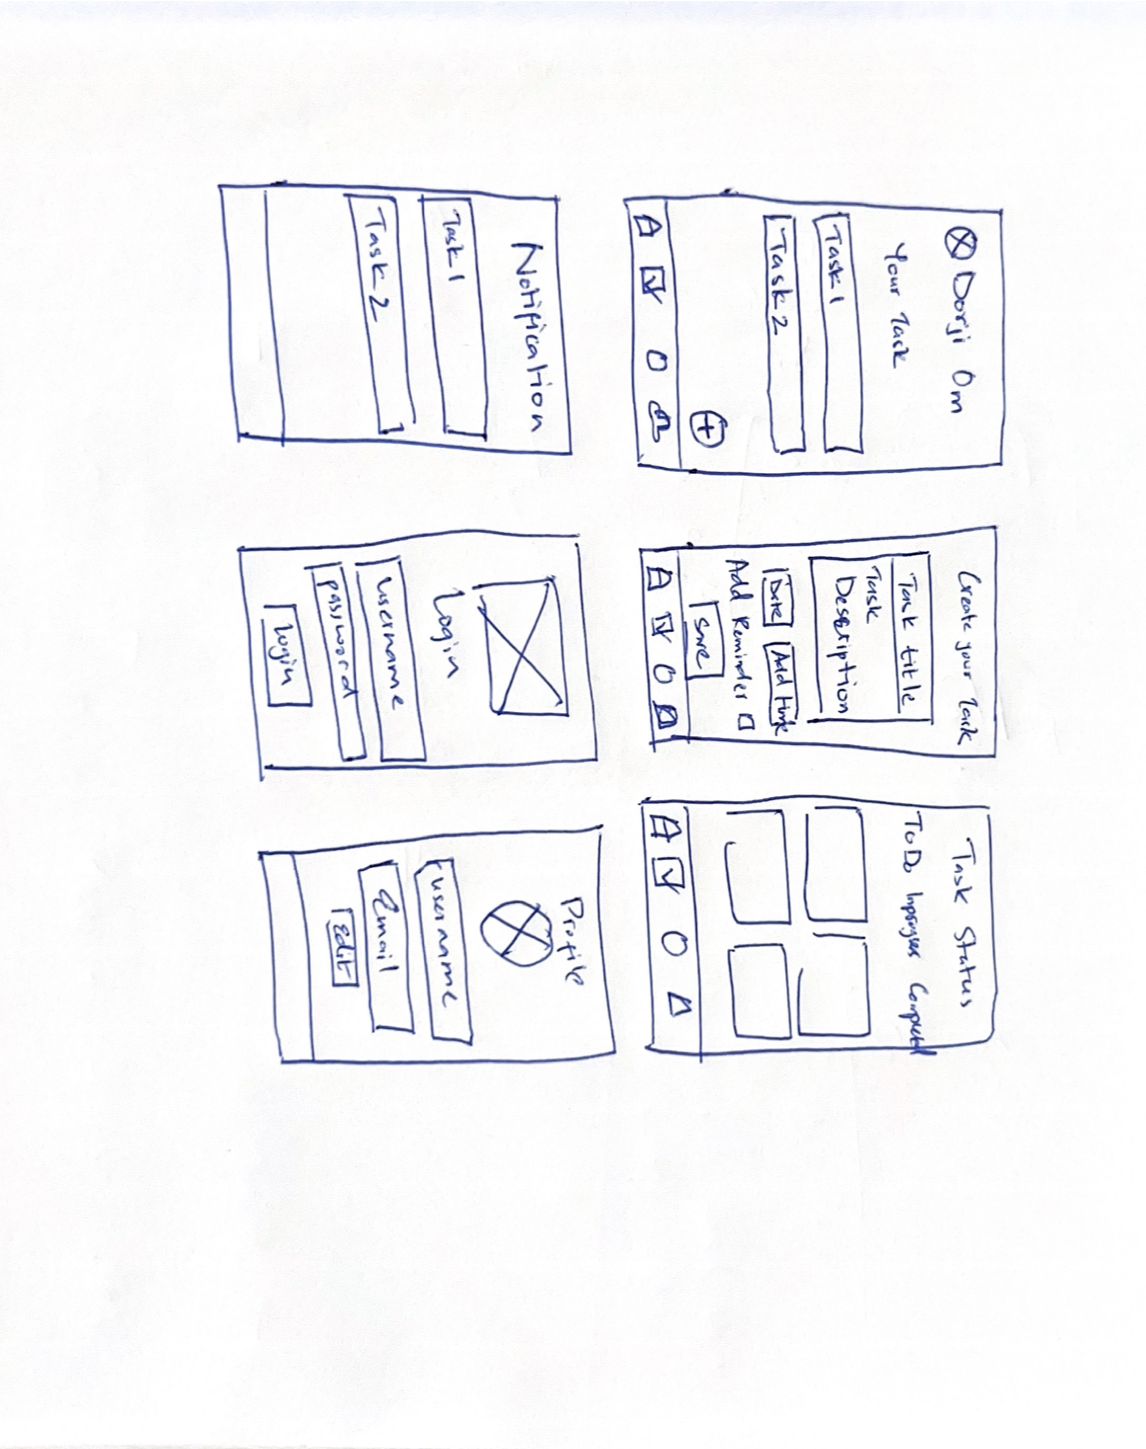 Dorji Om
Your Task
Task 1
Task 2
Create your Task
Task title
Task
Description
Date
Add time
Add Reminder
Save
Task Status
To Do Inprogress Completed
Notification
Task 1
Task 2
Login
username
password
Login
Profile
username
Email
Edit